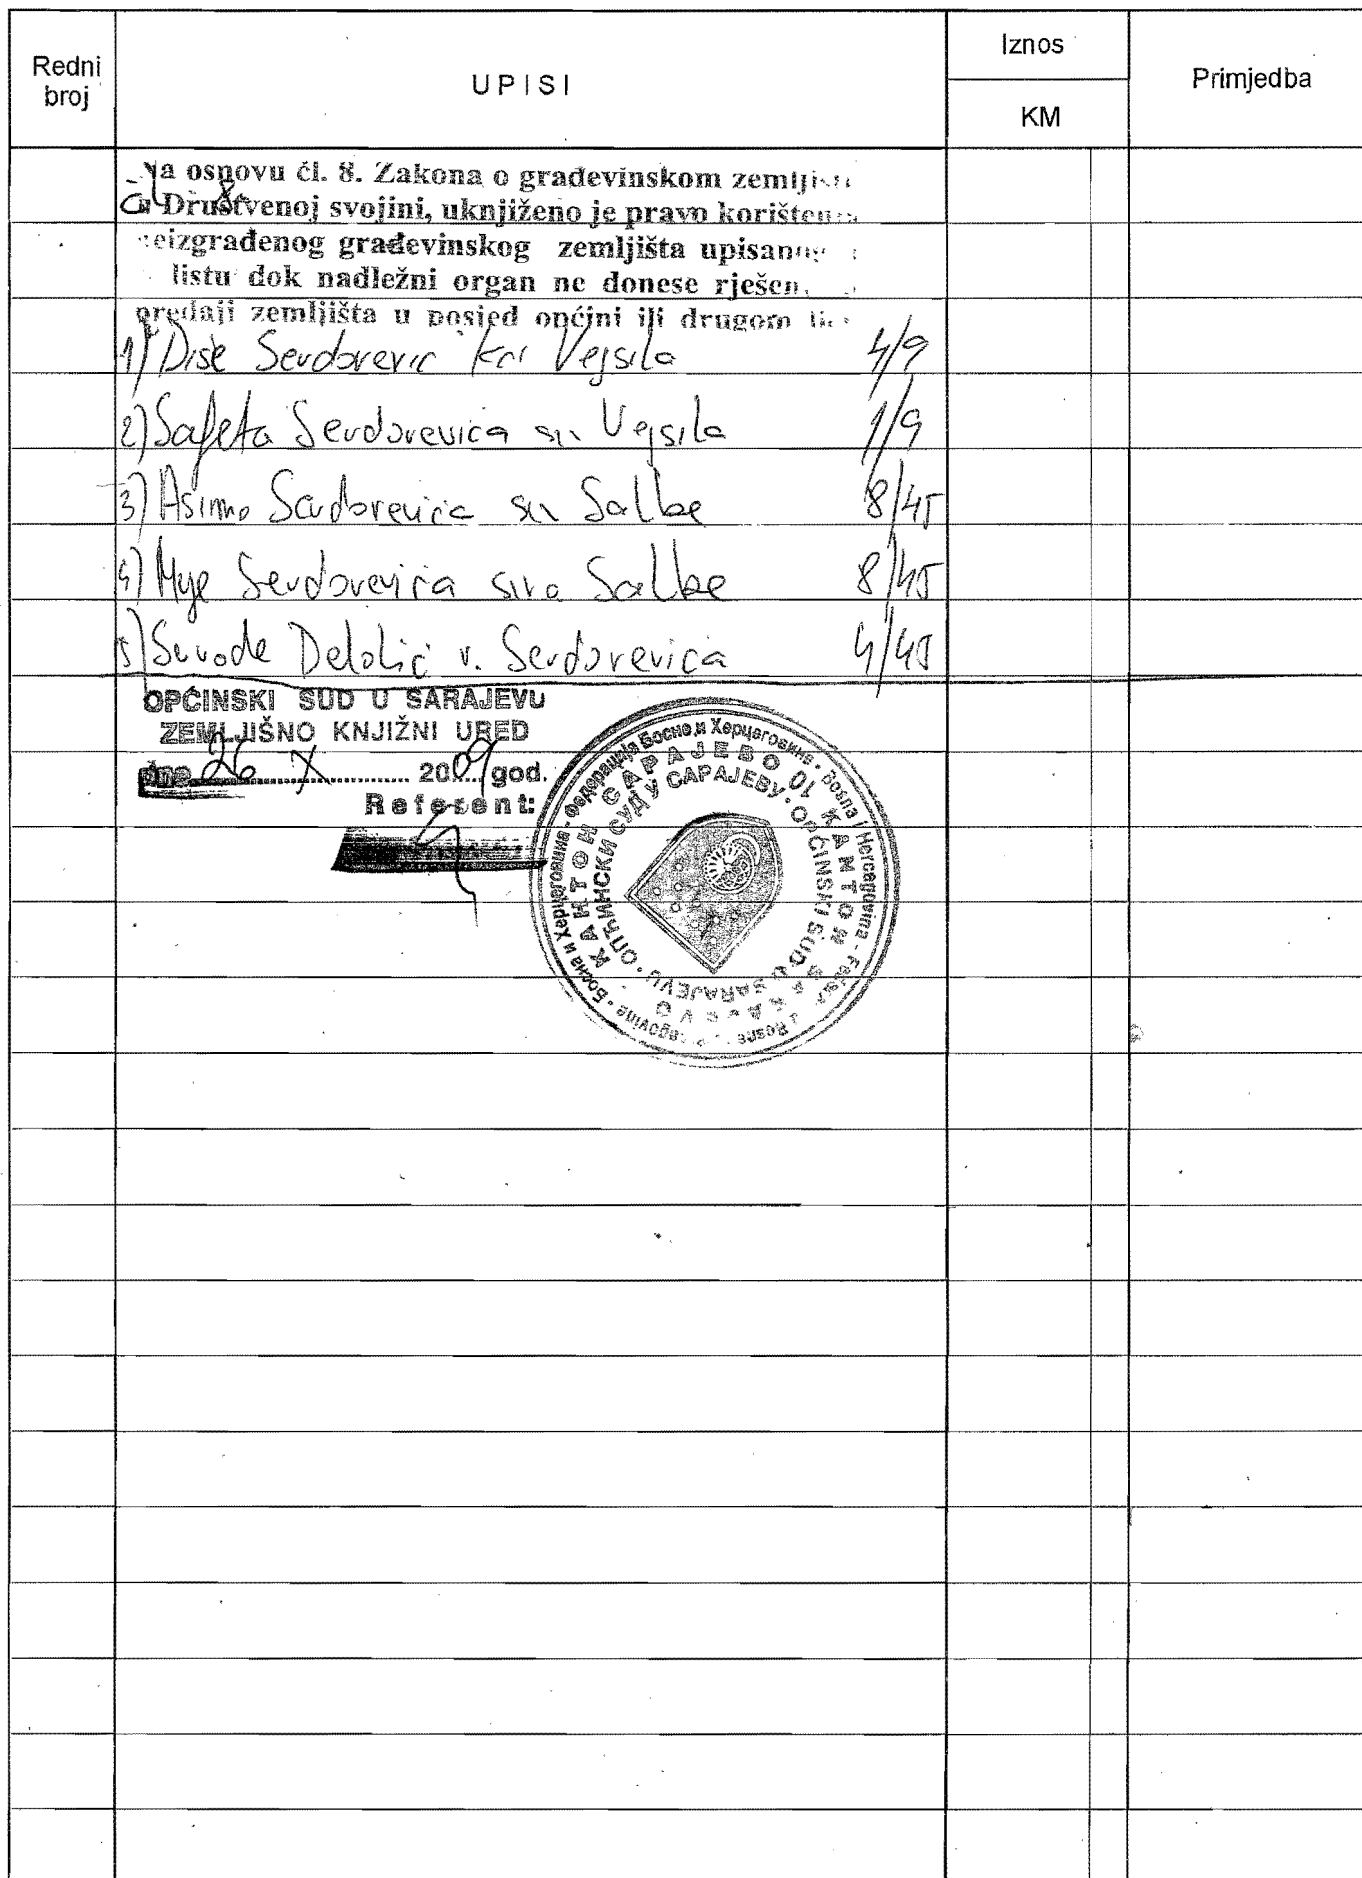 Redni broj
UPISI
Iznos
KM
Primjedba
Na osnovu čl. 8. Zakona o građevinskom
u Društvenoj svojini, uknjiženo je pravo
neizgrađenog građevinskog zemljišta
listu dok nadležni organ ne donese
predaji zemljišta u posjed općini ili drugom
1) Diše kći Vejsila 4/9
2) Safeta Serdarevića sin Vejsila 1/9
3) Asima Serdarevića sin Salke 8/45
4) Serdarevića sina Salke 8/45
5) r. Serdarevića 4/45
OPĆINSKI SUD U SARAJEVU
ZEMLJIŠNO KNJIŽNI URED
dne 26 X 2009 god.
Referent:
Босна и Херцеговина - Федерација Босне и Херцеговине - Bosna i Hercegovina
КАНТОН САРАЈЕВО 01 KANTON SARAJEVO
ОПЋИНСКИ СУД У САРАЈЕВУ · OPĆINSKI SUD U SARAJEVU